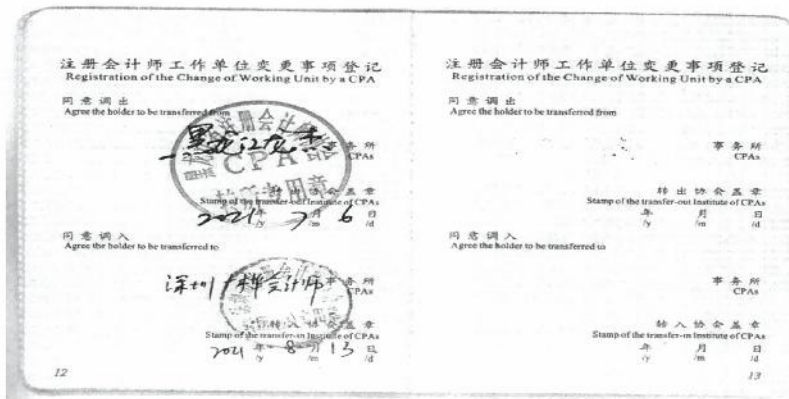 注册会计师工作单位变更事项登记
Registration of the Change of Working Unit by a CPA
同意调出
Agree the holder to be transferred from
黑龙江龙杰
事务所
CPAs
CPA
转所专用章
Stamp of the transfer-out Institute of CPAs
2021年 7月 6日
/y /m /d
同意调入
Agree the holder to be transferred to
深圳广华会计师事务所
CPAs
转入协会盖章
Stamp of the transfer-in Institute of CPAs
2021年 8月 13日
/y /m /d
12
注册会计师工作单位变更事项登记
Registration of the Change of Working Unit by a CPA
同意调出
Agree the holder to be transferred from
事务所
CPAs
转出协会盖章
Stamp of the transfer-out Institute of CPAs
年 月 日
/y /m /d
同意调入
Agree the holder to be transferred to
事务所
CPAs
转入协会盖章
Stamp of the transfer-in Institute of CPAs
年 月 日
/y /m /d
13